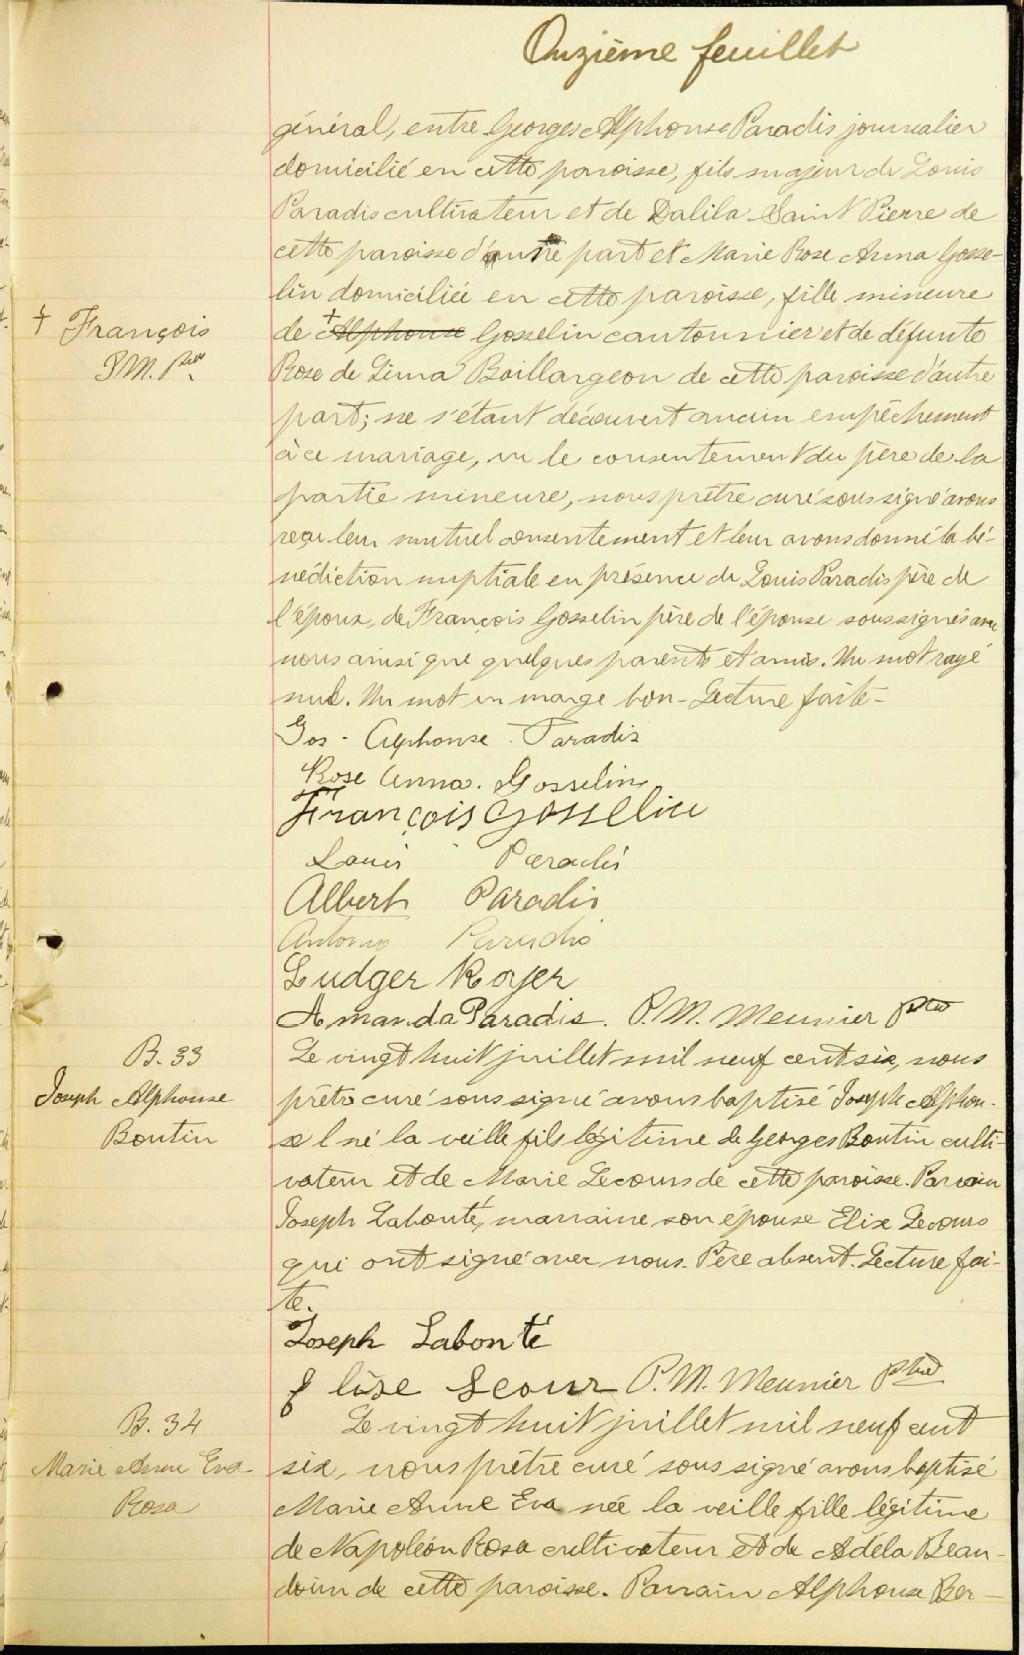 Onzième feuillet
général, entre Georges Alphonse Paradis journalier
domicilié en cette paroisse, fils majeur de Louis
Paradis cultivateur et de Dalila Saint Pierre de
cette paroisse d'autre part et Marie Rose Anna Gosse-
lin domiciliée en cette paroisse, fille mineure
† François
P.M. Ptre
de † Alphonse Gosselin cantonnier et de défunte
Rose de Lima Baillargeon de cette paroisse d'autre
part; ne s'étant découvert aucun empêchement
à ce mariage, vu le consentement du père de la
partie mineure, nous prêtre curé soussigné avons
reçu leur mutuel consentement et leur avons donné la bé-
nédiction nuptiale en présence de Louis Paradis père de
l'époux, de François Gosselin père de l'épouse soussignés avec
nous ainsi que quelques parents et amis. Un mot rayé
nul. Un mot en marge bon - Lecture faite -
Gos - Alphonse Paradis
Rose Anna. Gosselin
François Gosselin
Louis Paradis
Albert Paradis
Antonio Paradis
Ludger Royer
Amanda Paradis. P. M. Meunier Ptre
B. 33
Joseph Alphonse
Boutin
Le vingt huit juillet mil neuf cent six, nous
prêtre curé soussigné avons baptisé Joseph Alphon-
se l né la veille fils légitime de Georges Boutin culti-
vateur et de Marie Lecours de cette paroisse. Parrain
Joseph Labonté, marraine son épouse Elise Lecours
qui ont signé avec nous. Père absent. Lecture fai-
te.
Joseph Labonté
Elise Lecour P. M. Meunier Ptre
B. 34
Marie Anne Eva
Rosa
Le vingt huit juillet mil neuf cent
six, nous prêtre curé soussigné avons baptisé
Marie Anne Eva née la veille fille légitime
de Napoléon Rosa cultivateur et de Adéla Beau-
doin de cette paroisse. Parrain Alphonse Ber-